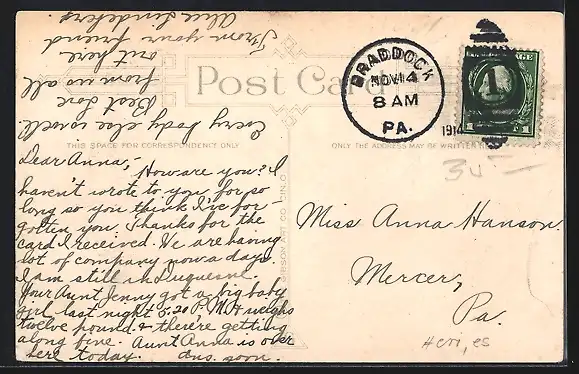 Post Card
THIS SPACE FOR CORRESPONDENCE ONLY
ONLY THE ADDRESS MAY BE WRITTEN
BRADDOCK
NOV 14
8 AM
PA.
1914
Dear Anna,-
How are you? I
haven't wrote to you for so
long so you think I've for-
gotten you. Thanks for the
card I received. We are having
lot of company now a days.
I am still in Duquesne.
Your Aunt Jenny got a big baby
girl last night 5.20 P.M. It weighs
twelve pound. & there're getting
along fine. Aunt Anna is over
here today. Ans. soon.
Every body else is well.
Best Love
from us all
out here
From your friend
Alice
Miss Anna Hanson.
Mercer,
Pa.
GIBSON ART CO. CIN. O.